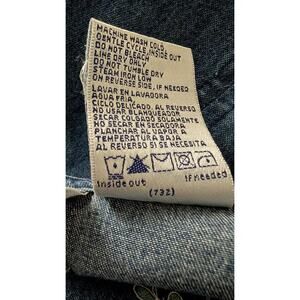 MACHINE WASH COLD
GENTLE CYCLE, INSIDE OUT
DO NOT BLEACH
LINE DRY ONLY
DO NOT TUMBLE DRY
STEAM IRON LOW
ON REVERSE SIDE, IF NEEDED
LAVAR EN LAVADORA
AGUA FRIA,
CICLO DELICADO, AL REVERSO
NO USAR BLANQUEADOR
SECAR COLGADO SOLAMENTE
NO SECAR EN SECADORA
PLANCHAR AL VAPOR A
TEMPERATURA BAJA
AL REVERSO SI SE NECESITA
Inside out
If needed
(732)